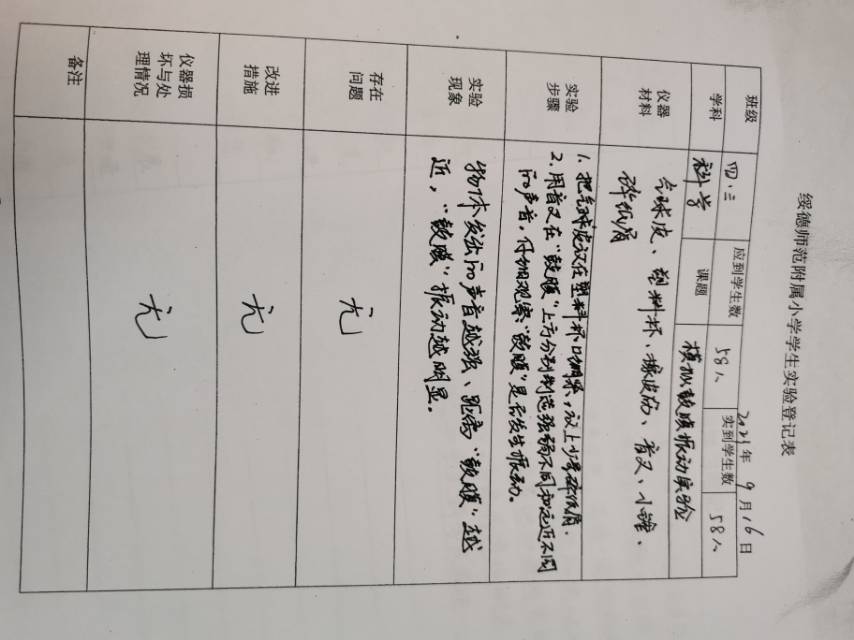 绥德师范附属小学学生实验登记表
2021年 9月16日
班级 四.三 应到学生数 58人 实到学生数 58人
学科 科学 课题 模拟鼓膜振动实验
仪器
材料
气球皮、塑料杯、橡皮筋、音叉、小锤、
碎纸屑
实验
步骤
1. 把气球皮in塑料杯口绷紧，放上少量碎纸屑.
2. 用音叉在“鼓膜”上方分别制造强弱不同和远近不同
的声音，仔细观察“鼓膜”是否发生振动。
实验
现象
物体发出的声音越强、距离“鼓膜”越
近，“鼓膜”振动越明显。
存在
问题
无
改进
措施
无
仪器损
坏与处
理情况
无
备注